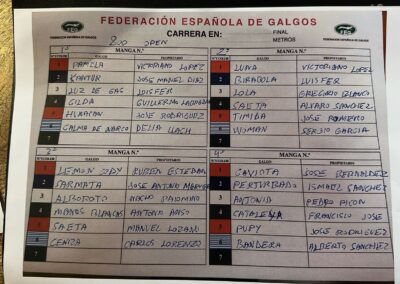 FEDERACIÓN ESPAÑOLA DE GALGOS
CARRERA EN:
FINAL
METROS
FEDERACION ESPAÑOLA DE GALGOS
FEDERACION ESPAÑOLA DE GALGOS
2UP OPEN
1ª MANGA N.º
Nº/COLOR GALGO PROPIETARIO
1 PAMELA VICTORIANO LOPEZ
2 KANTUR JOSE MANUEL DIAZ
3 LUZ DE GAS LUISFER
4 GILDA GUILLERMO
5 HURACAN JOSE RODRIGUEZ
6 CALMA DE NARCO DELIA LLACH
7
2ª MANGA N.º
Nº/COLOR GALGO PROPIETARIO
1 LUNA VICTORIANO LOPEZ
2 LUISFER
3 LOLA GREGORIO BLANCO
4 SAETA ALVARO SANCHEZ
5 TIMBA JOSE ROMERO
6 WOMAN SERGIO GARCIA
7
3ª MANGA N.º
Nº/COLOR GALGO PROPIETARIO
1 LEMON JODY RUBEN ESTEBAN
2 PARMATA JOSE ANTONIO
3 ALBOROTO NACHO PALOMINO
4 MANOS BLANCAS ANTONIO
5 SAETA MANUEL LOZANO
6 CENIZA CARLOS LORENZO
7
4ª MANGA N.º
Nº/COLOR GALGO PROPIETARIO
1 GAVIOTA JOSE BERNALDEZ
2 PERTURBADO ISMAEL SANCHEZ
3 ANTONIA PEDRO PICON
4 CATALEYA FRANCISCO JOSE
5 PUPY JOSE RODRIGUEZ
6 BANDERA ALBERTO SANCHEZ
7